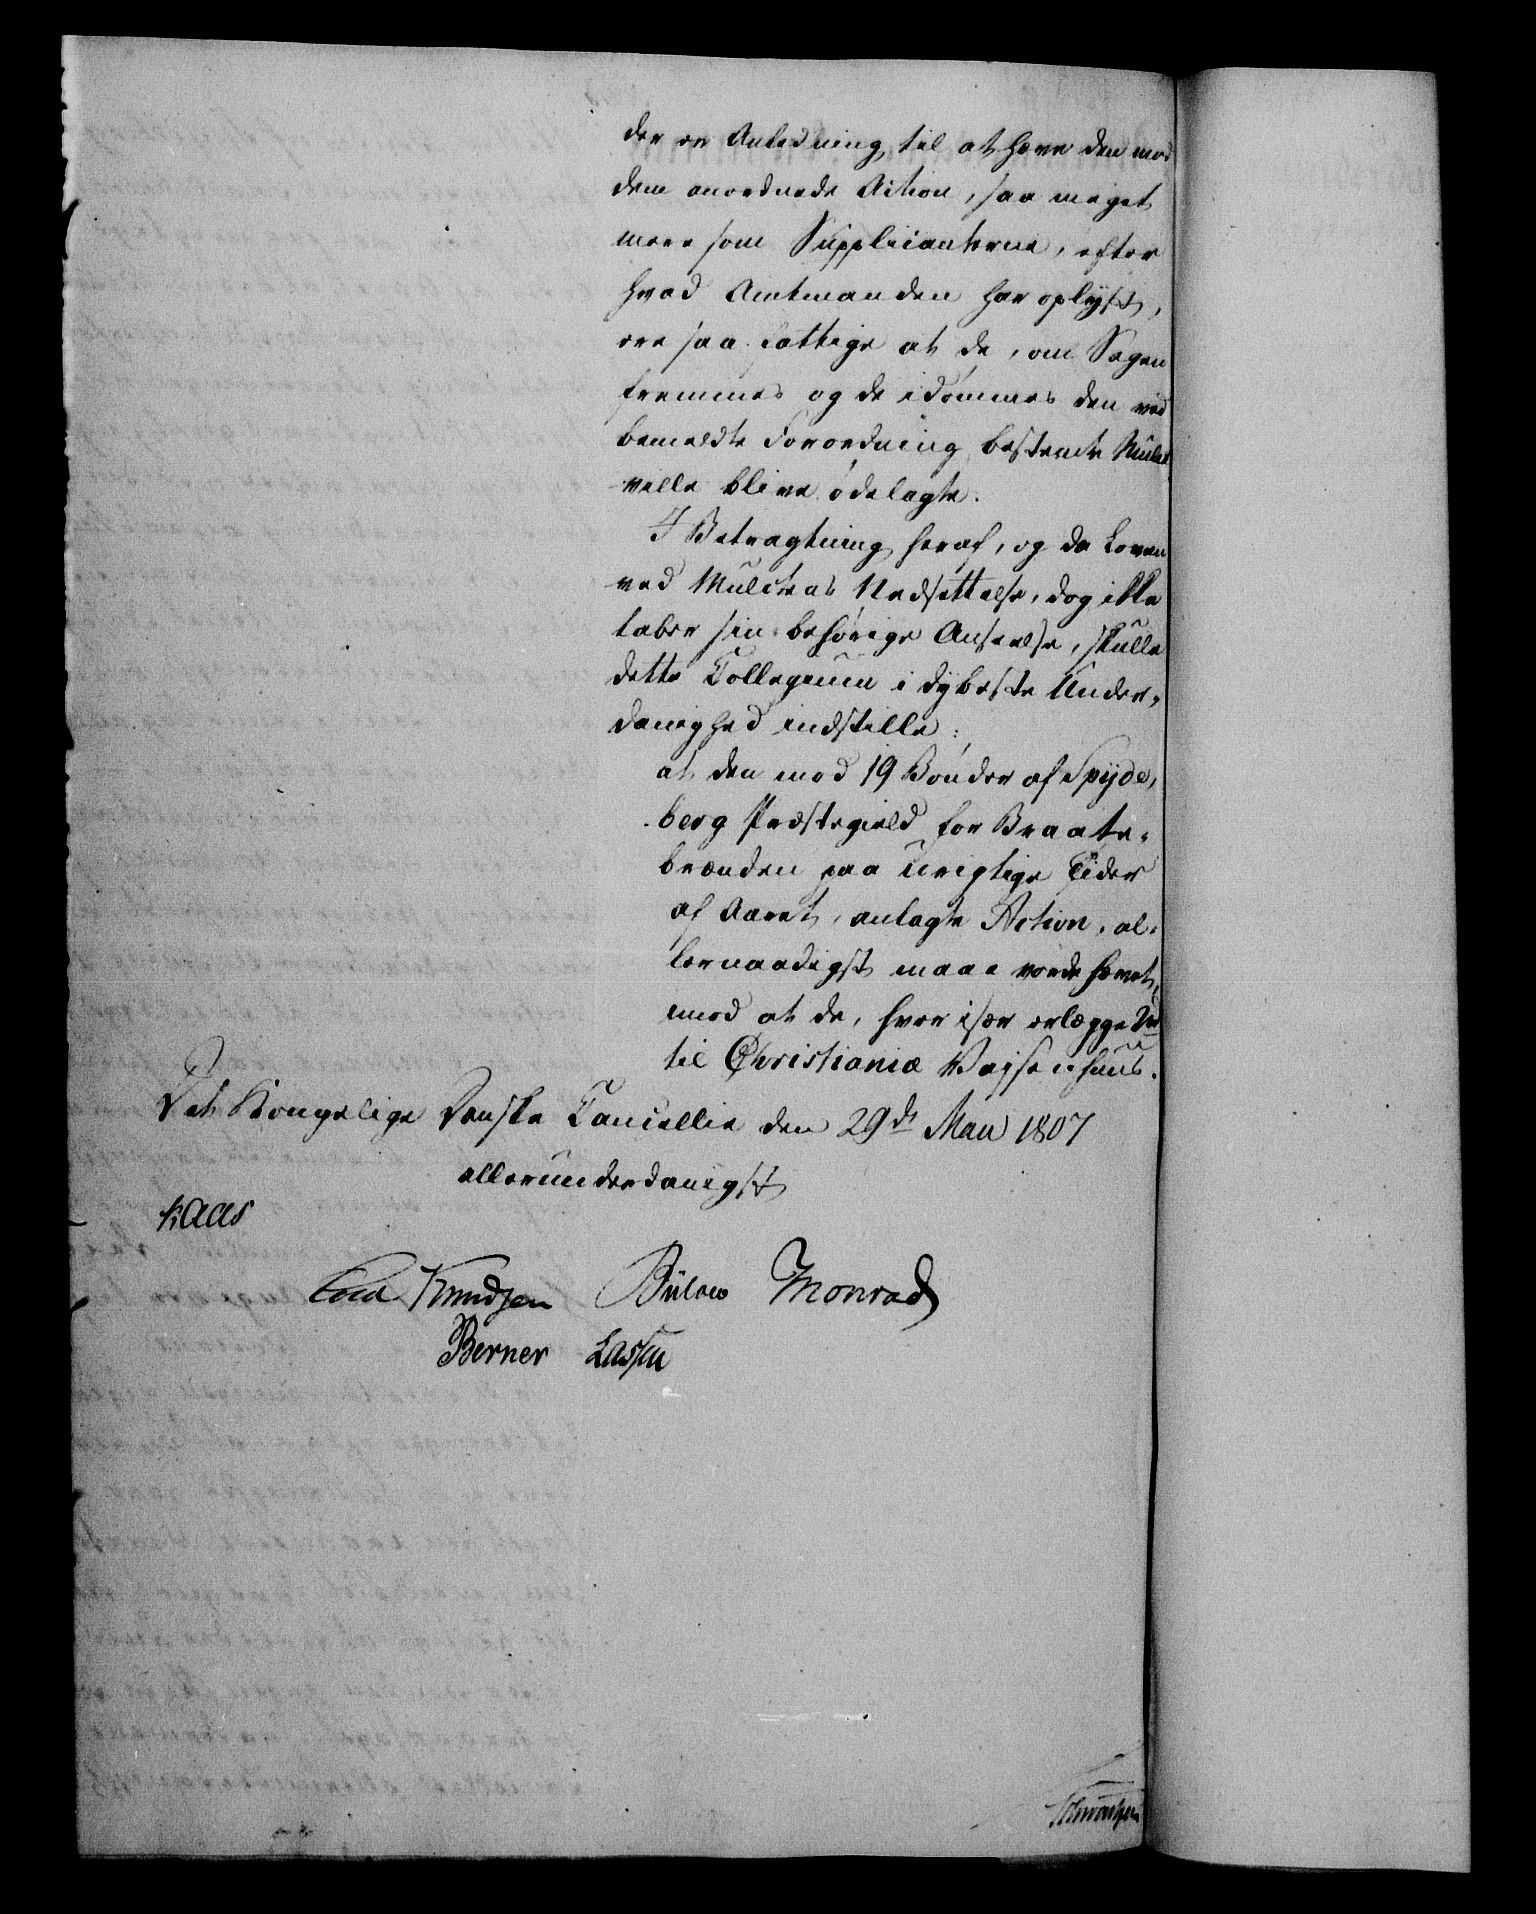 der er Anledning til at hæve den mod
dem anordnede Action, saa meget
mere som Supplicanterne, efter
hvad Amtmanden har oplyst,
ere saa fattige at de, om Sagen
fremmes og de idømmes den ved
bemeldte Forordning bestemte Mulct
ville blive ødelagte.
I Betragtning heraf, og da Loven
ved Mulctens Nedsættelse, dog ikke
taber sin behørige Anseelse, skulle
dette Collegium i dybeste Under-
danighed indstille:
at den mod 19 Bønder af Spyde-
berg Præstegield for Braate-
brænden paa urigtige Tider
af Aaret, anlagte Action, al-
lernaadigst maae vorde hævet,
mod at de, hver især erlægge
til Christianiæ Vaisenhuus.
Det Kongelige Danske Cancellie den 29de Maii 1807
allerunderdanigst
Kaas
Cold Knudsen Bülow Monrad
Berner Lassen